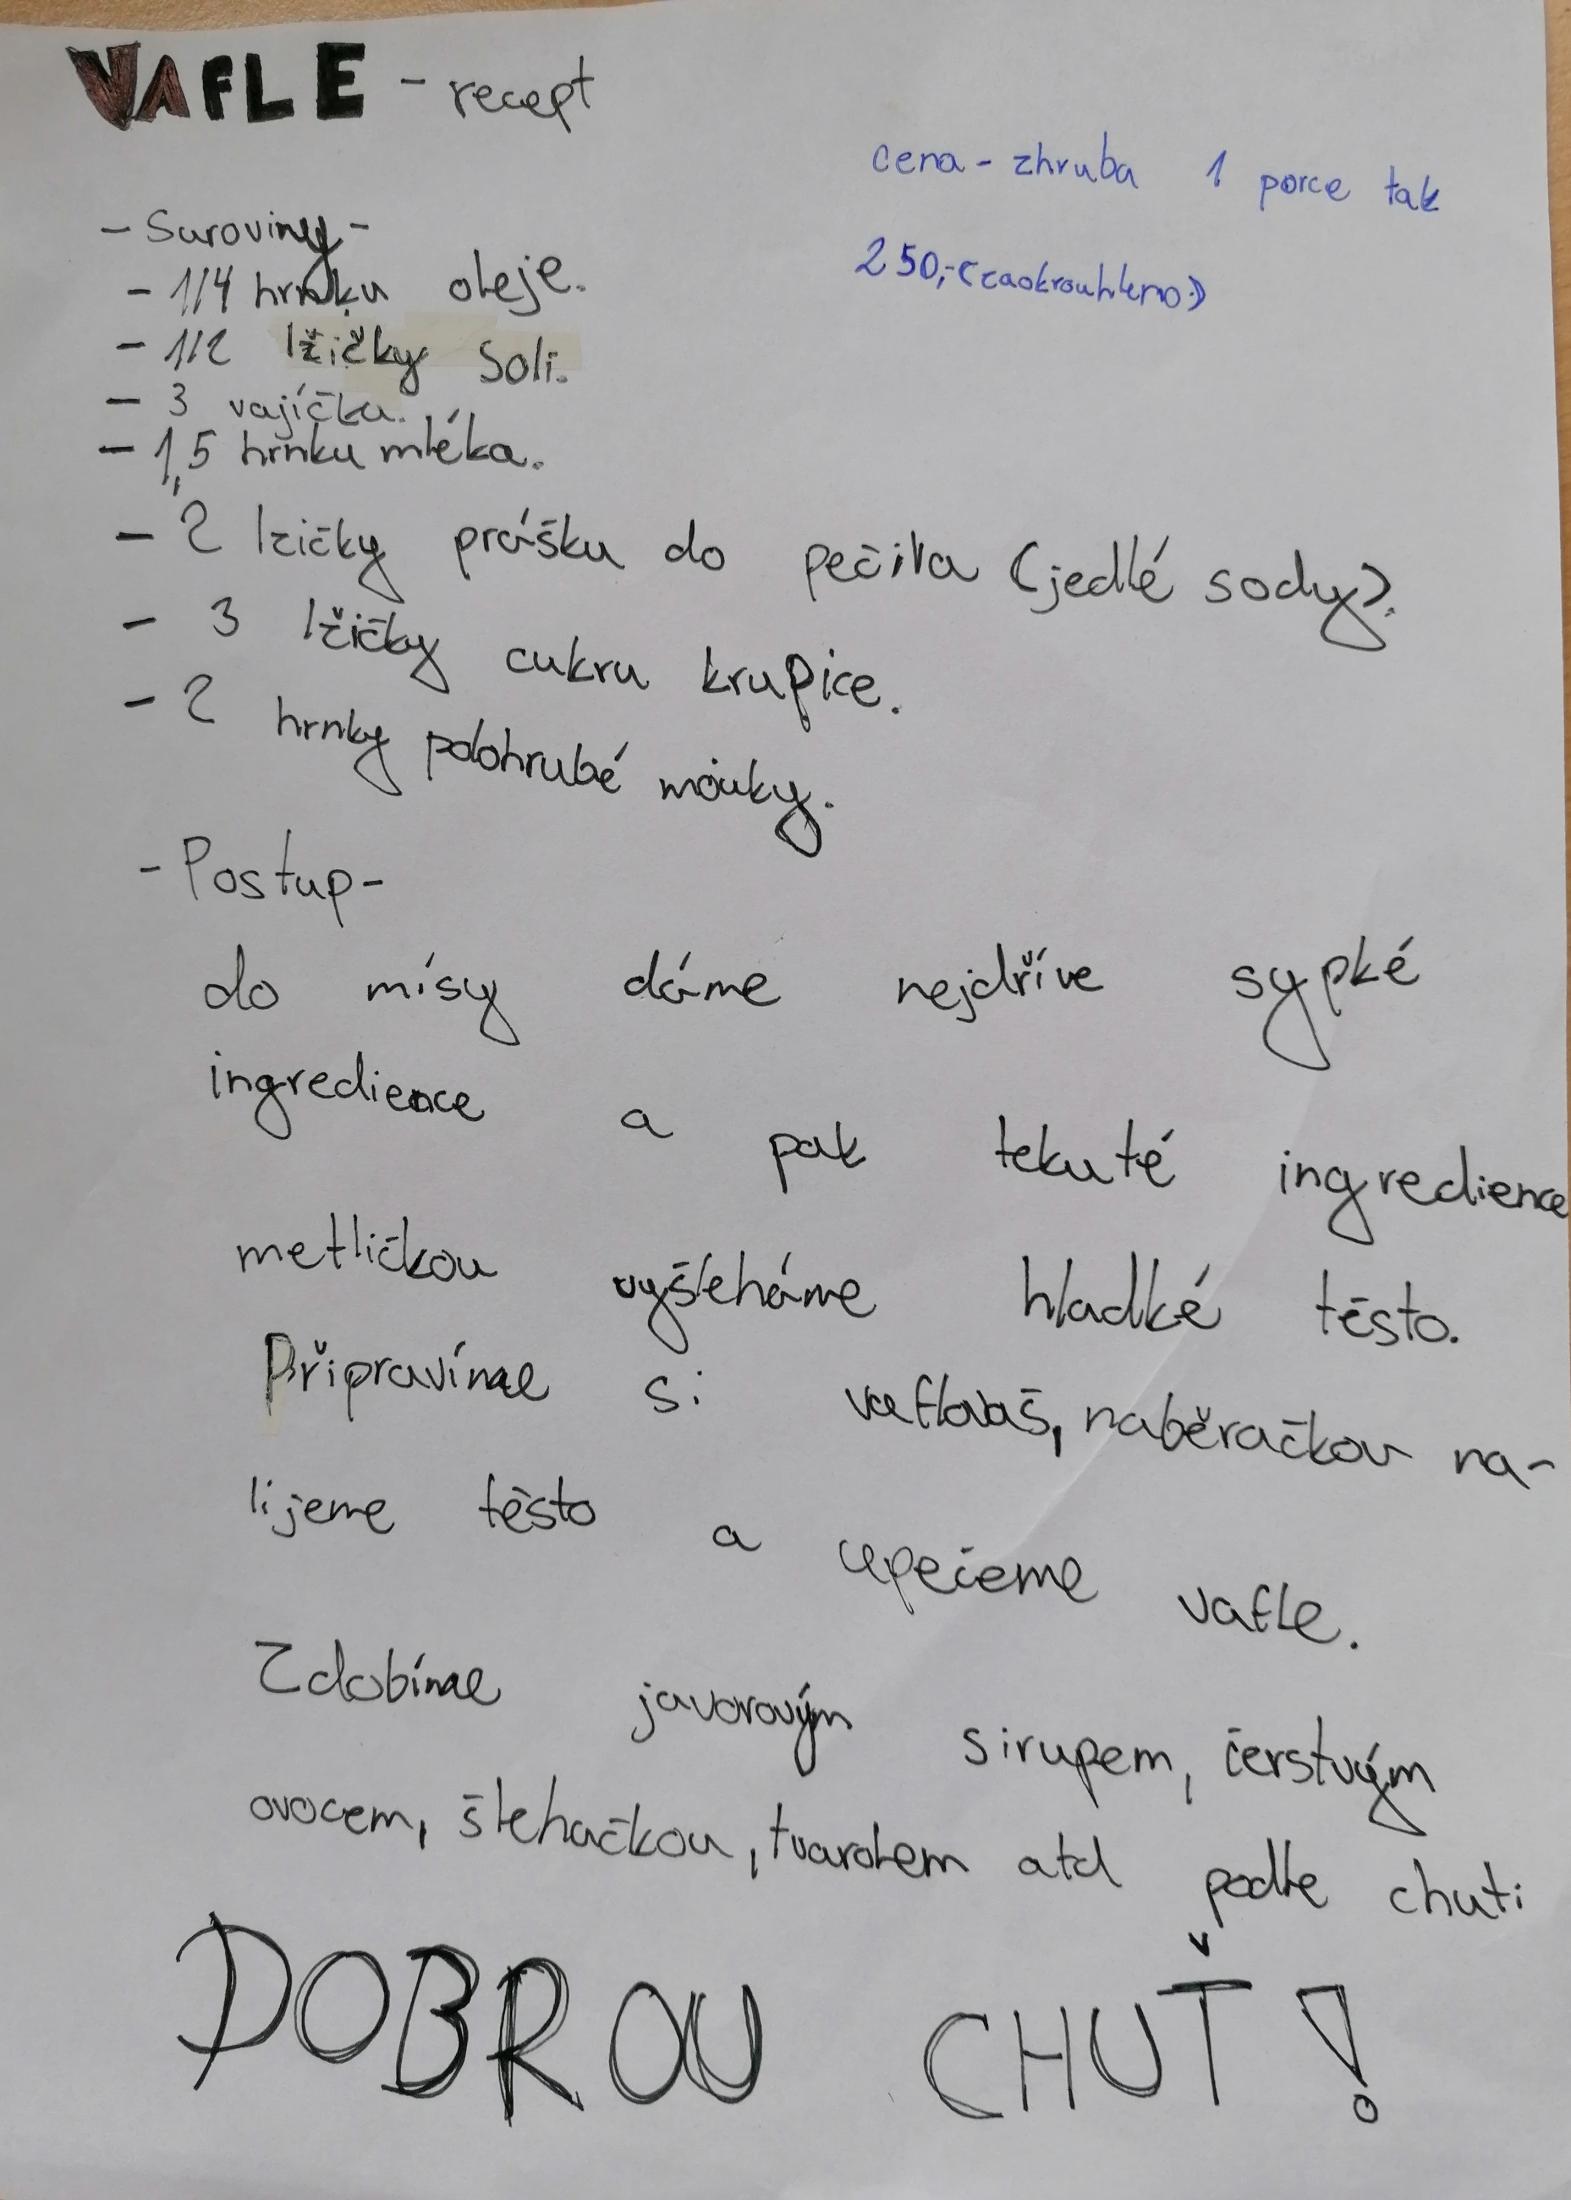 VAFLE - recept
cena - zhruba 1 porce tak
250,- (zaokrouhleno)
- Suroviny -
- 1/4 hrnku oleje.
- 1/2 lžičky soli.
- 3 vajíčka.
- 1,5 hrnku mléka.
- 2 lžičky prášku do pečiva (jedlé sody).
- 3 lžičky cukru krupice.
- 2 hrnky polohrubé mouky.
- Postup -
do mísy dáme nejdříve sypké
ingredience a pak tekuté ingredience
metličkou vyšleháme hladké těsto.
Připravíme si vaflovaš, naběračkou na-
lijeme těsto a upečeme vafle.
Zdobíme javorovým sirupem, čerstvým
ovocem, šlehačkou, tvarohem atd podle chuti
DOBROU CHUŤ!